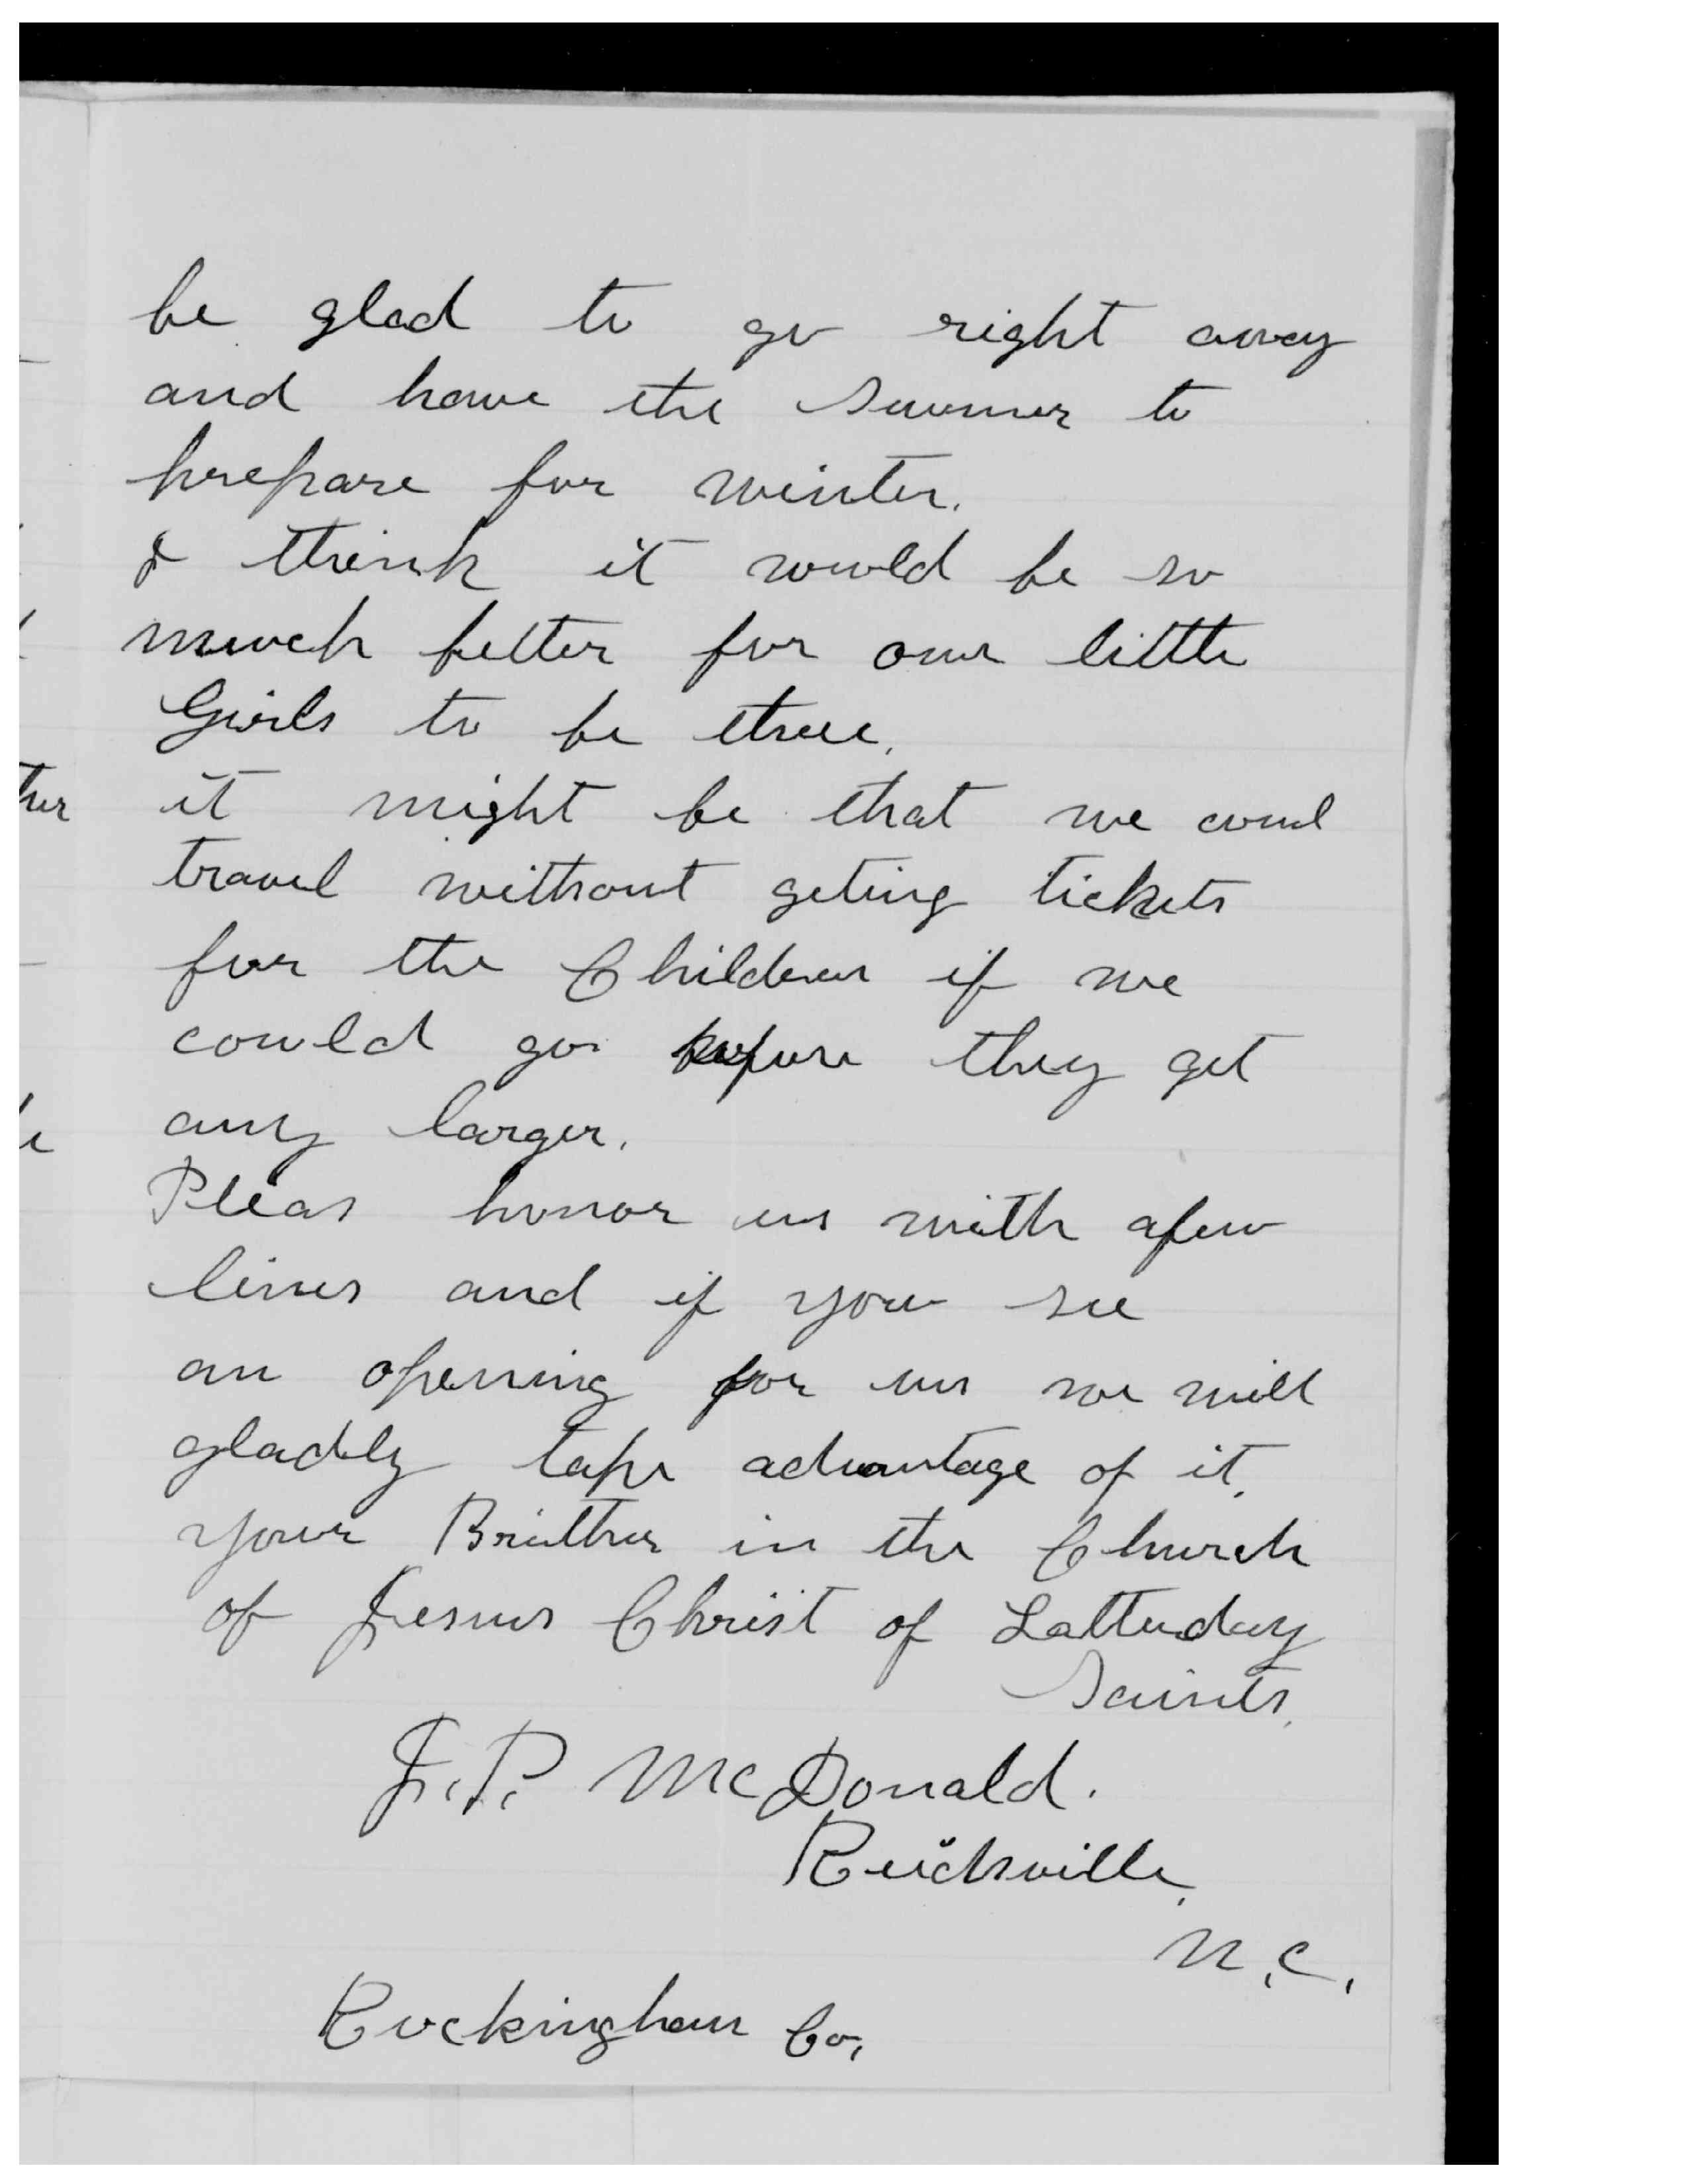 be glad to go right away
and have the Summer to
prepare for winter.
I think it would be so
much better for our little
Girls to be there.
it might be that we coul
travel without geting tickets
for the Children if we
could go before they get
any larger.
Pleas honor us with afew
lines and if you see
an opening for us we will
gladly take advantage of it.
your Brother in the Church
of Jesus Christ of Latterday
Saints.
J. P. McDonald.
Reidsville,
N.C.
Rockingham Co,